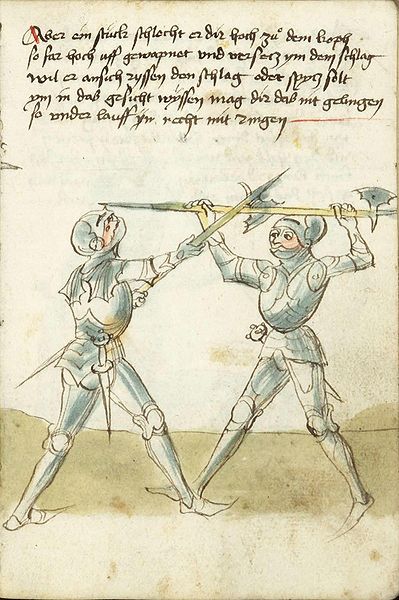 Aber ein stuck schlecht er dir hoch zů dem kopff
so far hoch uff gewapnet und versecz ym den schlag
wil er an sich ryssen den schlag oder spycz solt
ym in das gesicht wyssen mag dir das nit gelingen
so under lauff yn recht mit ringen